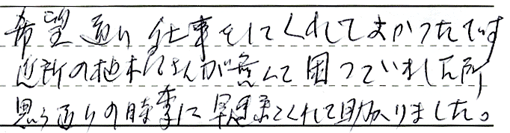 希望通り仕事をしてくれてよかったです
近所の植木屋さんが高くて困っていました所、
思う通りの時季に早急来てくれて助かりました。